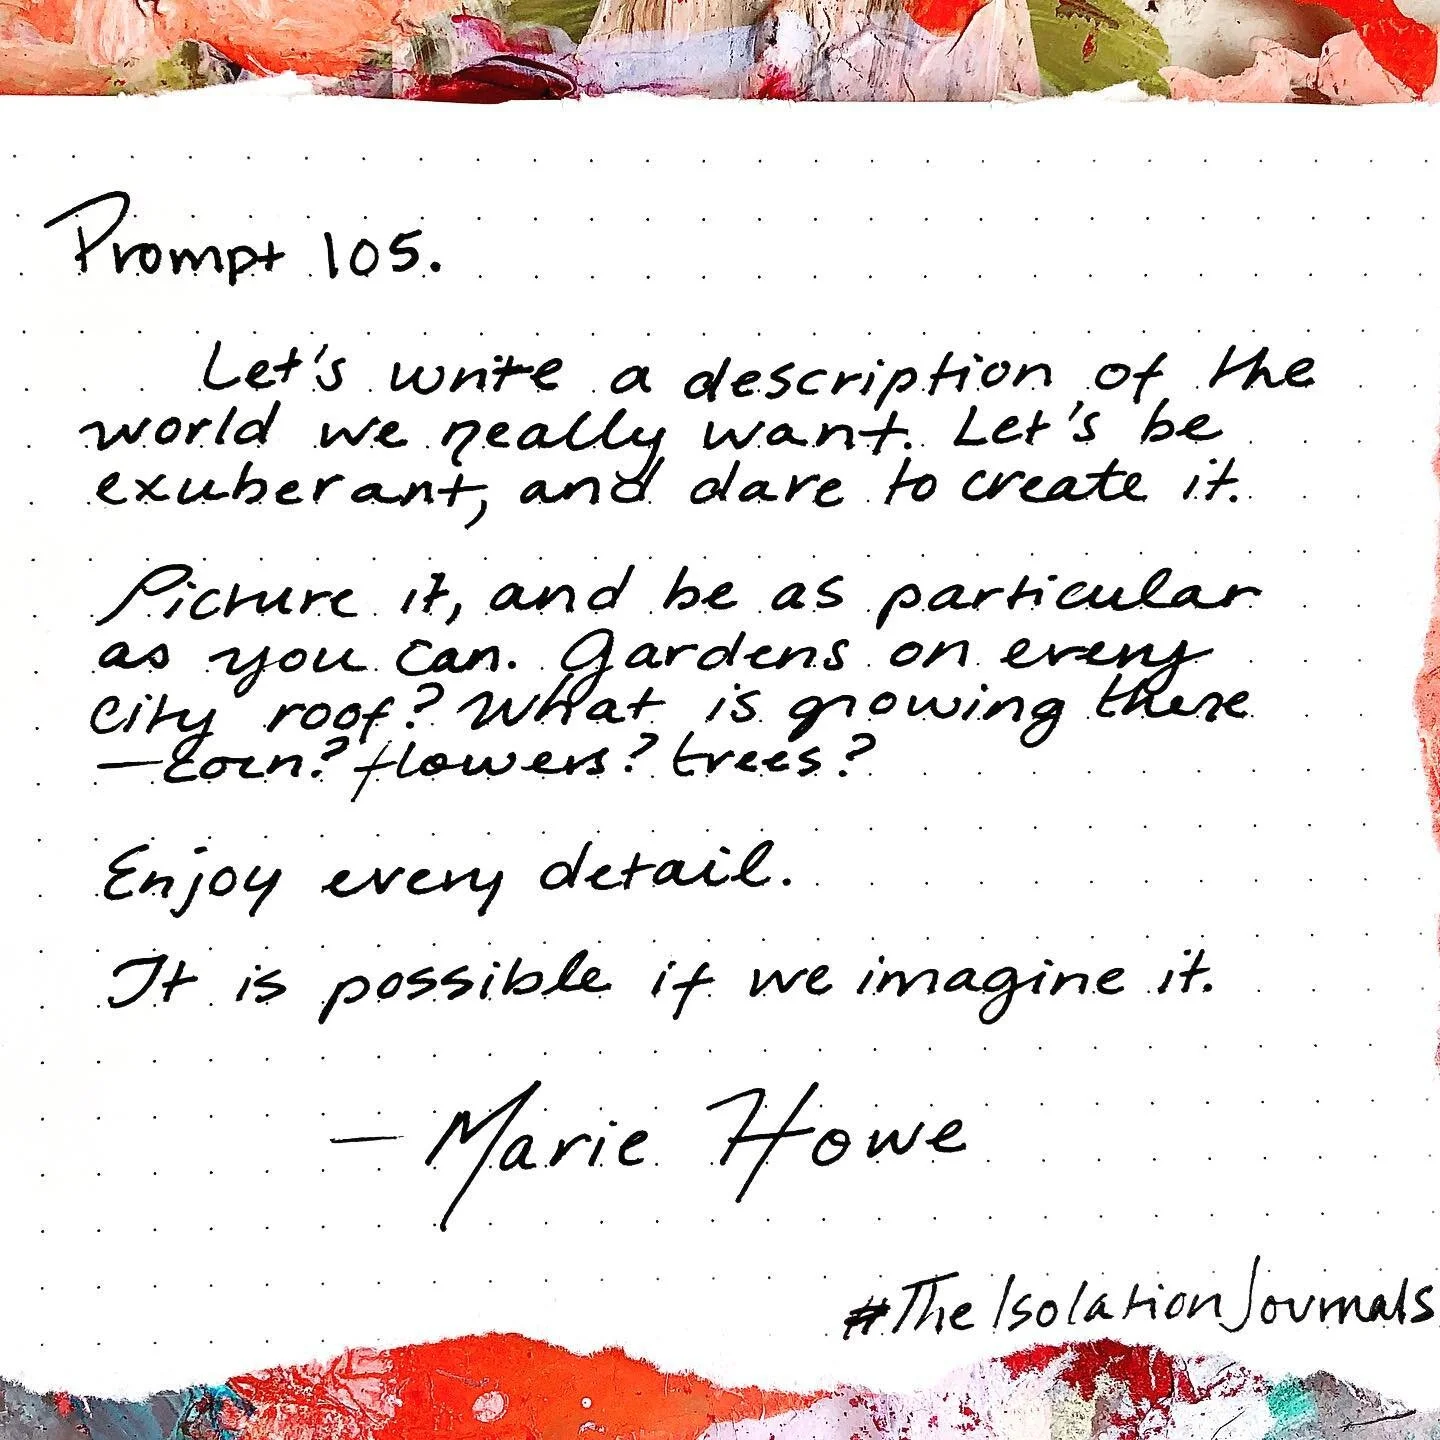 Prompt 105.
Let's write a description of the
world we really want. Let's be
exuberant, and dare to create it.
Picture it, and be as particular
as you can. Gardens on every
city roof? What is growing there
—corn? flowers? trees?
Enjoy every detail.
It is possible if we imagine it.
— Marie Howe
#TheIsolationJournals